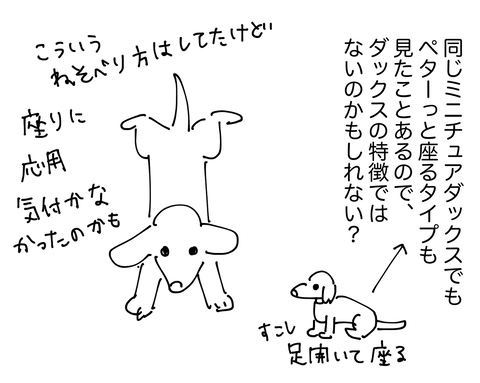 同じミニチュアダックスでも
ペターっと座るタイプも
見たことあるので、
ダックスの特徴では
ないのかもしれない？
すこし
足開いて座る
こういう
ねそべり方はしてたけど
座りに
応用
気付かな
かったのかも